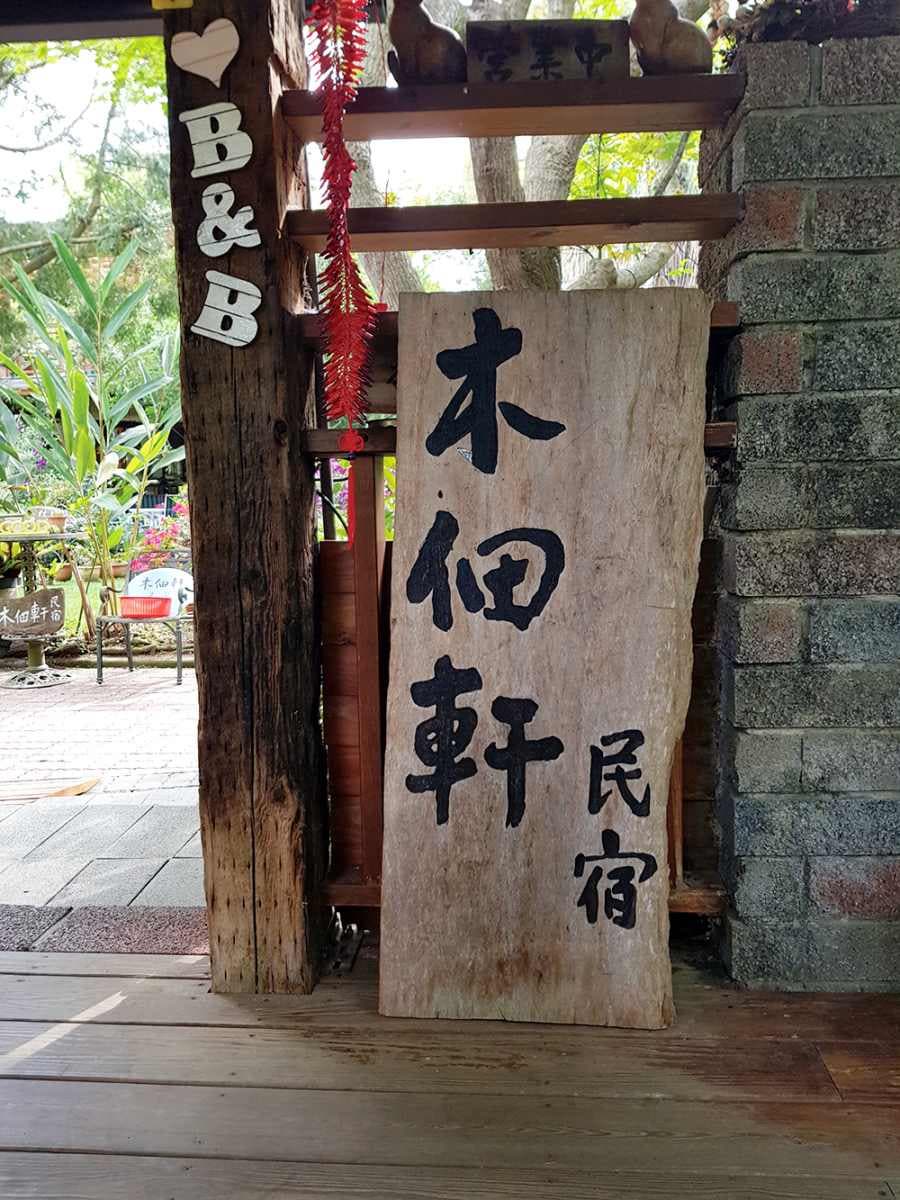 營業中
B&B
木佃軒
民宿
木佃軒
木佃軒民宿